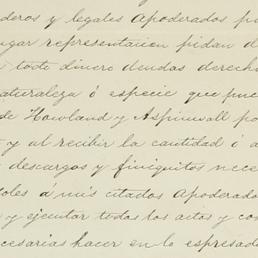 deros y legales apoderados pa
ugar representaicon pidan d
todo dinero deudas derecho
aturaleza ó especie que pue
de Howland y Aspinwall po
y al recibir la cantidad ó a
descargos y finiquitos nece
doles á mis citados apoderado
y ejecutar todos los actos y con
cesarias hacer en lo espresado